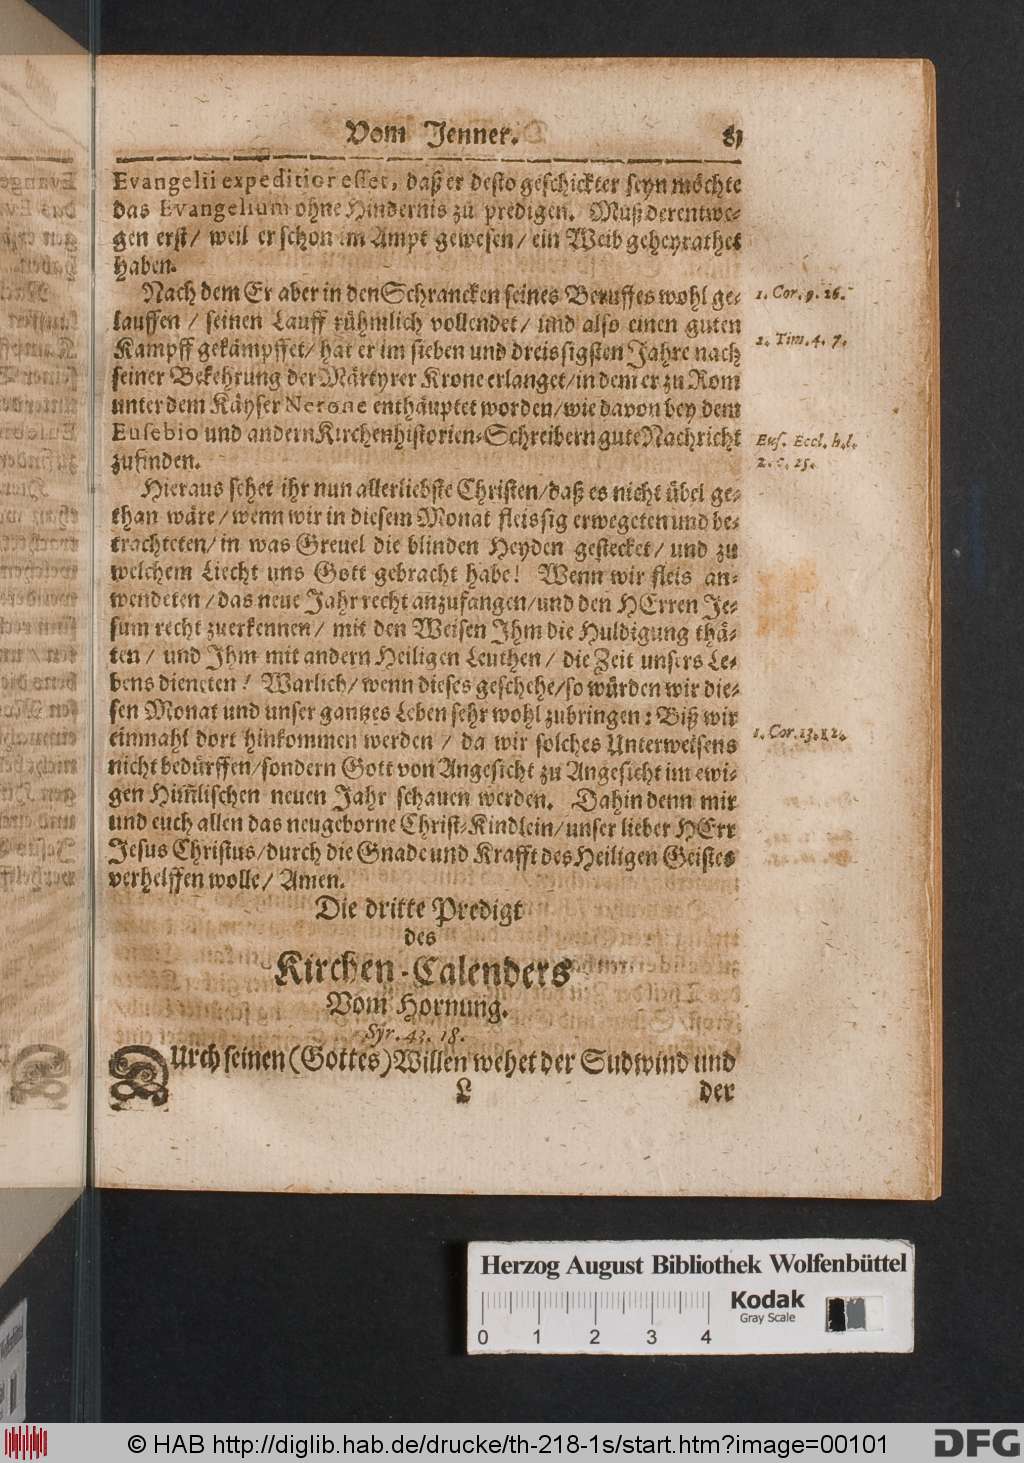 Vom Jenner. 81
Evangelii expeditior esset, daß er desto geschickter seyn möchte
das Evangelium ohne Hindernis zu predigen. Muß derentwe-
gen erst/ weil er schon im Ampt gewesen/ ein Weib geheyrathet
haben.
Nach dem Er aber in den Schrancken seines Beruffes wohl ge-
lauffen / seinen Lauff rühmlich vollendet/ und also einen guten
Kampff gekämpffet/ hat er im sieben und dreissigsten Jahre nach
seiner Bekehrung der Märtyrer Krone erlanget/ in dem er zu Rom
unter dem Käyser Nerone enthäuptet worden/ wie davon bey dem
Eusebio und andern Kirchenhistorien-Schreibern gute Nachricht
zufinden.
1. Cor. 9. 26.
2. Tim. 4. 7.
Eus. Eccl. h. l.
2. c. 25.
Hieraus sehet ihr nun allerliebste Christen/ daß es nicht übel ge-
than wäre/ wenn wir in diesem Monat fleissig erwegeten und be-
trachteten/ in was Greuel die blinden Heyden gestecket/ und zu
welchem Liecht uns Gott gebracht habe! Wenn wir fleis an-
wendeten / das neue Jahr recht anzufangen/ und den HErren Je-
sum recht zuerkennen/ mit den Weisen Ihm die Huldigung thä-
ten/ und Ihm mit andern Heiligen Leuthen/ die Zeit unsers Le-
bens dieneten! Warlich/ wenn dieses geschehe/ so würden wir die-
sen Monat und unser gantzes Leben sehr wohl zubringen: Biß wir
einmahl dort hinkommen werden / da wir solches Unterweisens
nicht bedürffen/ sondern Gott von Angesicht zu Angesicht im ewi-
gen Him̃lischen neuen Jahr schauen werden. Dahin denn mir
und euch allen das neugeborne Christ-Kindlein/ unser lieber HErr
Jesus Christus/ durch die Gnade und Krafft des Heiligen Geistes
verhelffen wolle/ Amen.
1. Cor. 13. 12.
Die dritte Predigt
des
Kirchen-Calenders
Vom Hornung.
Syr. 43. 18.
Durch seinen (Gottes) Willen wehet der Sudwind und
L der
Herzog August Bibliothek Wolfenbüttel
Kodak
Gray Scale
0 1 2 3 4
© HAB http://diglib.hab.de/drucke/th-218-1s/start.htm?image=00101
DFG